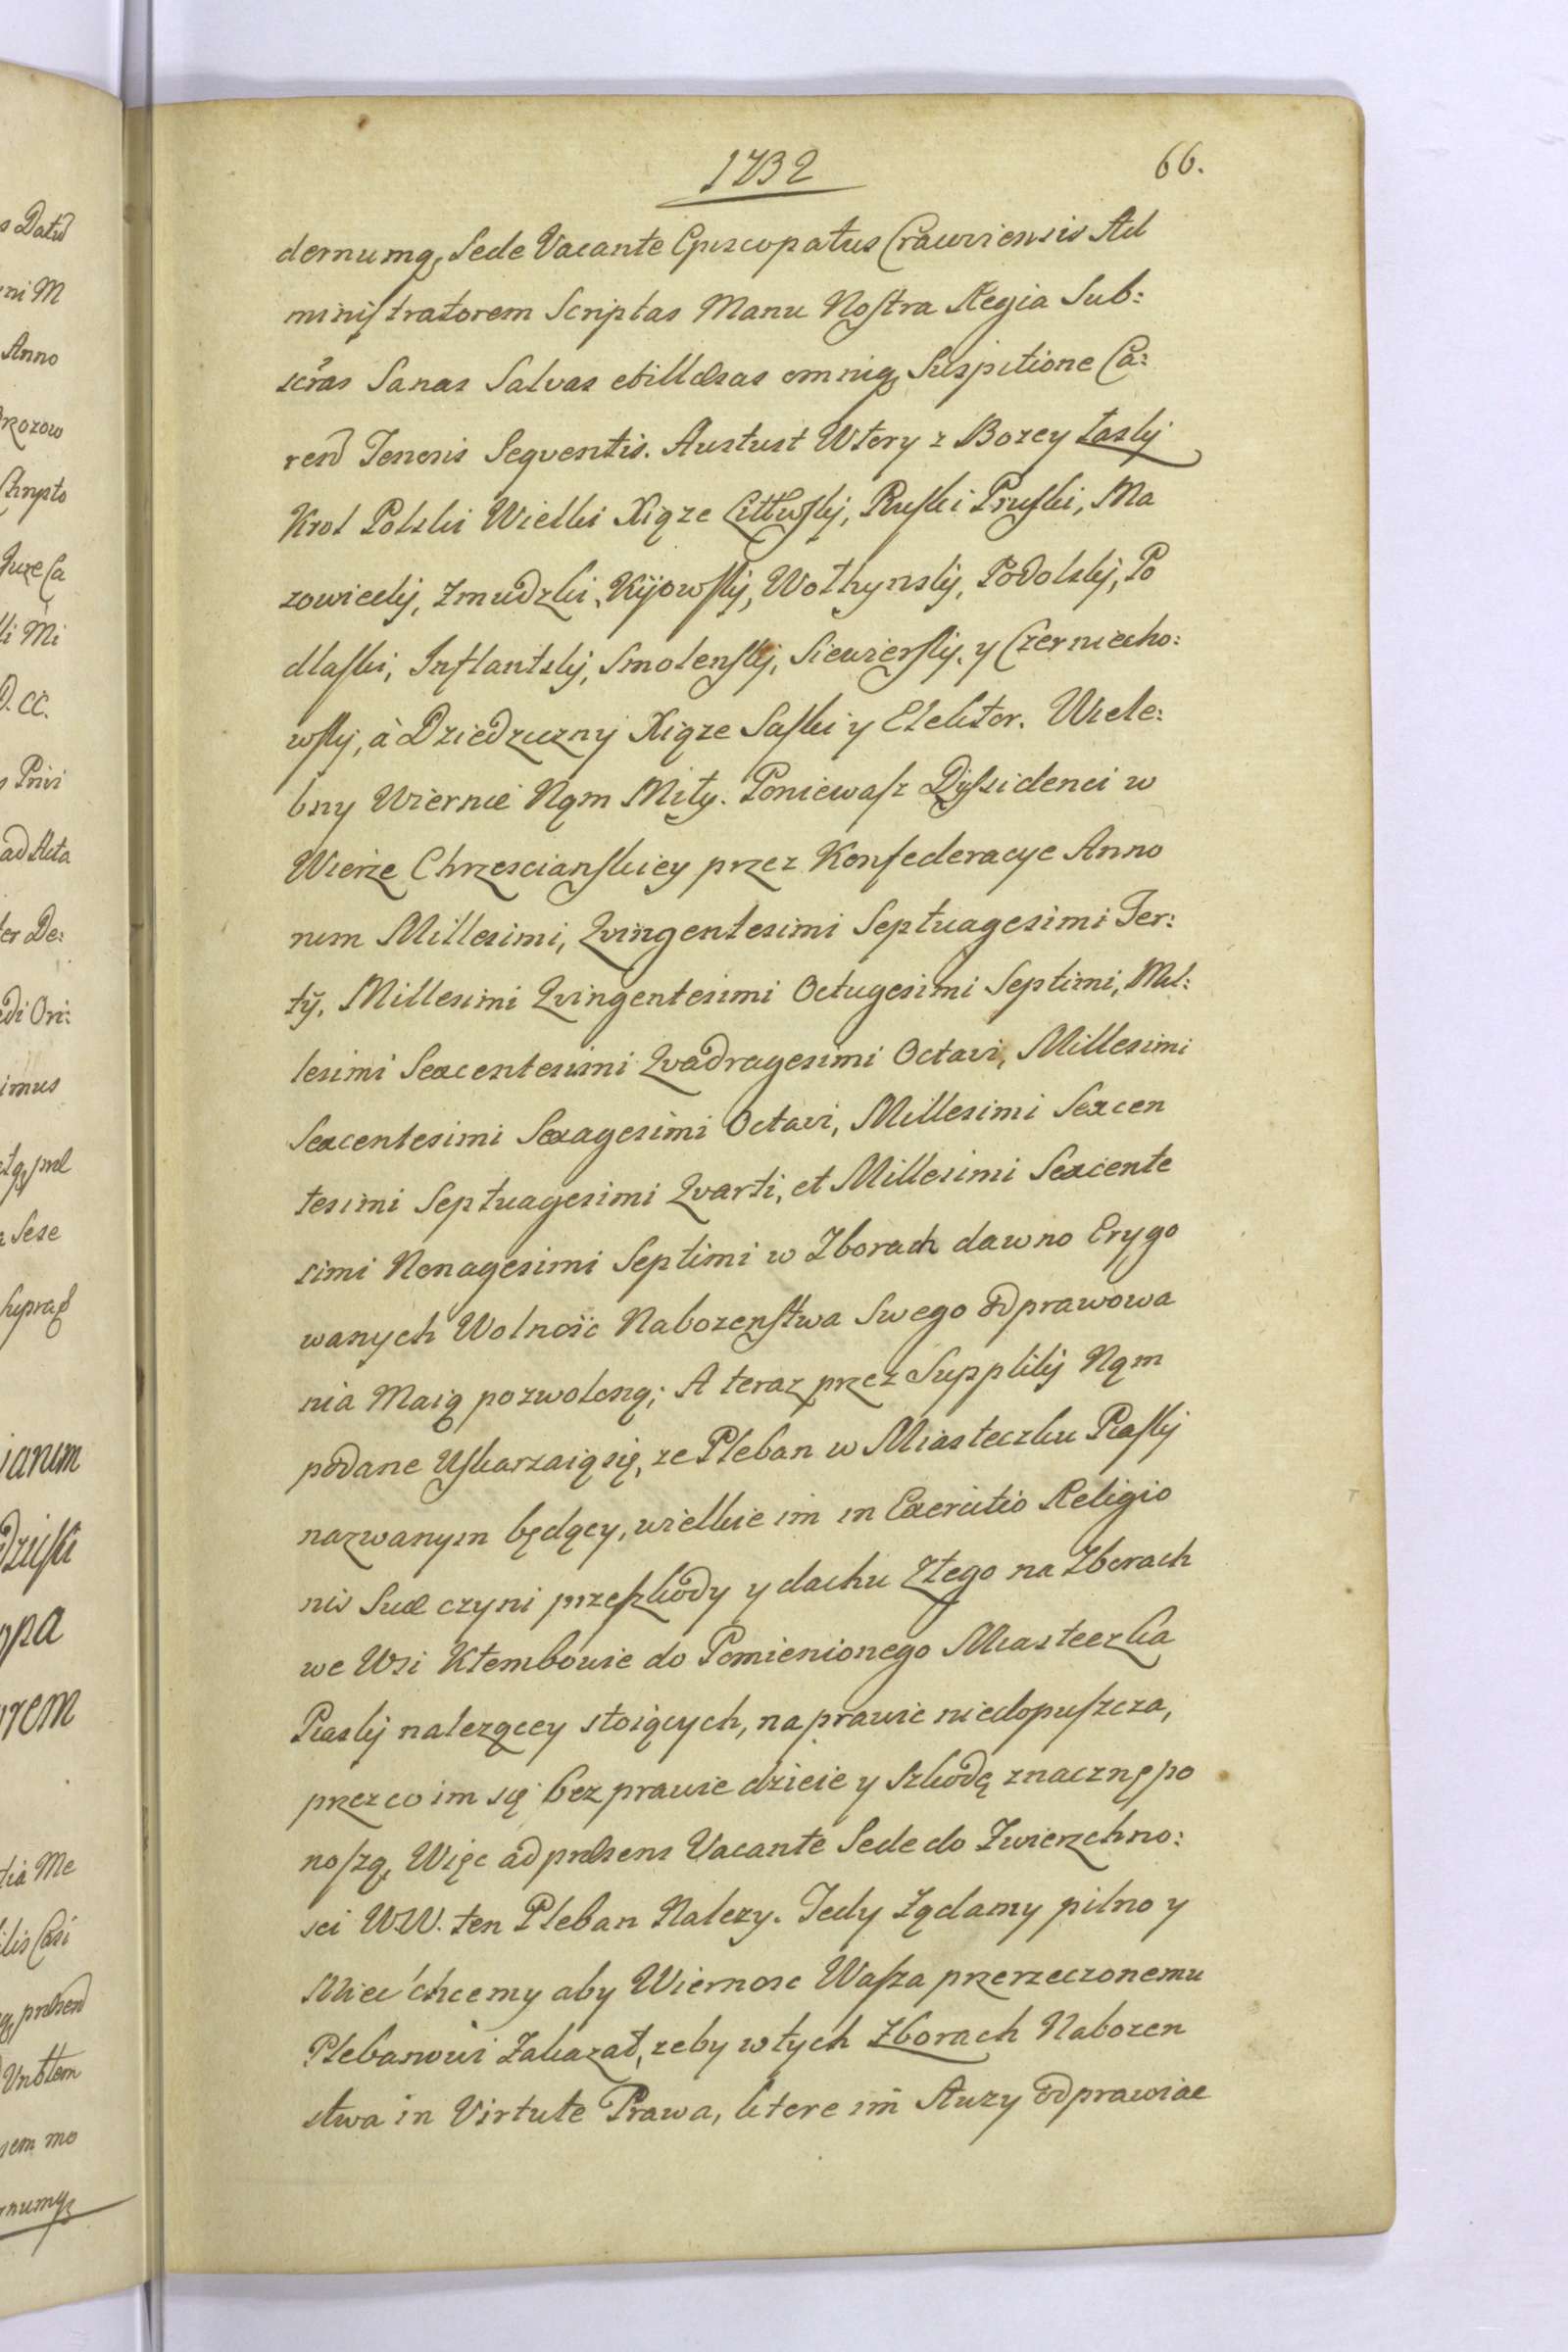 1732
66.
dernumq, Sede Vacante Episcopatus Cracoviensis Ad
ministratorem Scriptas Manu Nostra Regia Sub:
scras Sanas Salvas et illæsas omniq, Suspitione Ca:
rend Tenoris Seqventis. Austust Wtory z Bozey łaskij
Krol Polski Wielki Xiąze Littwskij, Ruski Pruski, Ma
zowieckij, Zmudzki, Kijowskij, Wołhynskij, Podolskij, Po
dlaski, Inflantskij, Smolenskij, Siewierskij, y Czerniecho:
wskij, à Dziedziczny Xiąze Saski y Elektor. Wiele:
bny Wiernie Nąm Miły. Poniewasz Dyssidenci w
Wierze Chrzescianskiey przez Konfederacye Anno
rum Millesimi, Qvingentesimi Septuagesimi Ter:
tÿ, Millesimi Qvingentesimi Octugesimi Septimi, Mil:
lesimi Sexcentesimi Qvadragesimi Octavi, Millesimi
Sexcentesimi Sexagesimi Octavi, Millesimi Sexcen
tesimi Septuagesimi Qvarti, et Millesimi Sexcente
simi Nonagesimi Septimi w Zborach dawno Erygo
wanych Wolnosc Nabozenstwa Swego odprawowa
nia Maią pozwoloną; A teraz przez Supplikij Nąm
podane Uskarzaią się, ze Pleban w Miasteczku Piaskij
nazwanym będący, wielkie im in Exercitio Religio
nis Suæ czyni przeszkody y dachu Złego na Zborach
we Wsi Kłembowie do Pomienionego Miasteczka
Piaskij nalezącey stoiących, naprawic niedopuszcza,
przez co im się bezprawie dzieie y Szkodę znaczną po
noszą, Więc ad præsens Vacante Sede do Zwierzchno:
sci W.W. ten Pleban Nalezy. Tedy Ządamy pilno y
Miec chcemy aby Wiernosc Wasza przerzeczonemu
Plebanowi Zakazał, zeby w tych Zborach Nabozen
stwa in Virtute Prawa, ktore im słuzy odprawiac